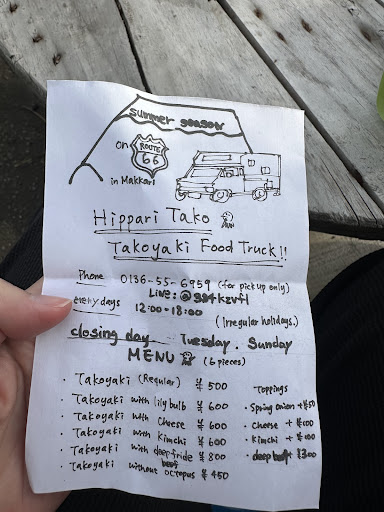 summer season
on
ROUTE
66
in Makkari
Hippari Tako
Takoyaki Food Truck!!
Phone 0136-55-6959 (for pick up only)
Line: @994kzvfl
everydays 12:00-18:00
(Irregular holidays.)
closing day Tuesday. Sunday
MENU (6 pieces)
・Takoyaki (Regular) ¥ 500
・Takoyaki with lily bulb ¥ 600
・Takoyaki with Cheese ¥ 600
・Takoyaki with Kimchi ¥ 600
・Takoyaki with deepfride ¥ 800
beef
・Takoyaki without octopus ¥ 450
Toppings
・Spring onion + ¥50
・Cheese + ¥100
・Kimchi + ¥100
・deep beef + ¥300